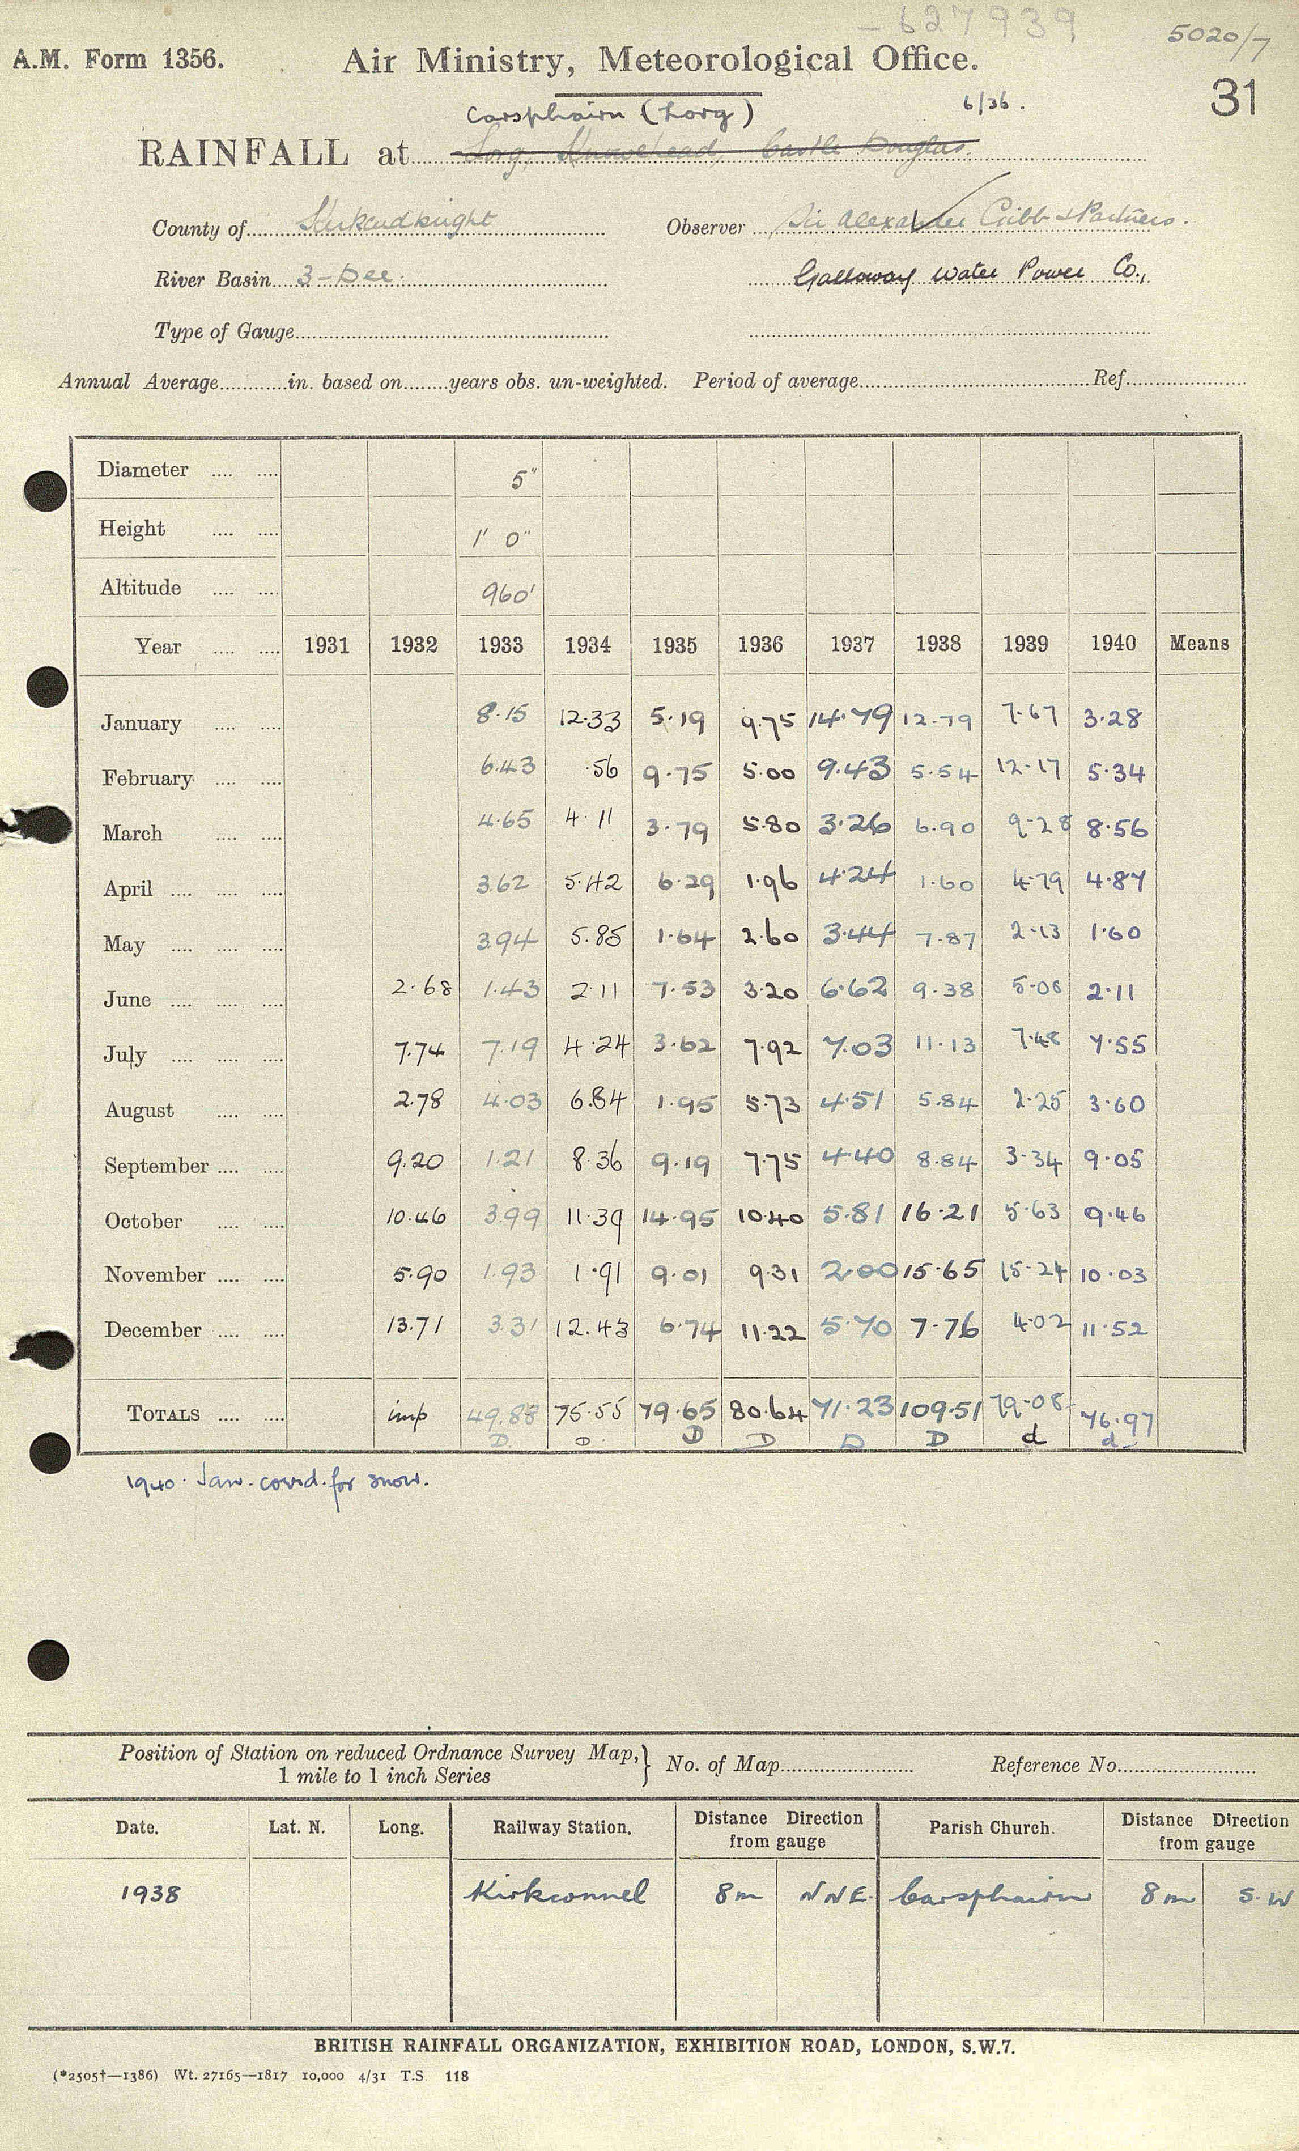 627939
5020/7
A.M. Form 1356.
Air Ministry, Meteorological Office.
31
Carsphairn (Lorg)
6/36.
RAINFALL at Lorg, Knowehead, Castle Douglas.
County of Kirkcudbright
Observer Sir Alexander Gibb & Partners.
River Basin 3-Dee.
Galloway Water Power Co.,
Type of Gauge
Annual Average in. based on years obs. un-weighted. Period of average Ref.
Diameter 5"
Height 1' 0"
Altitude 960'
Year 1931 1932 1933 1934 1935 1936 1937 1938 1939 1940 Means
January 8.15 12.33 5.19 9.75 14.79 12.79 7.67 3.28
February 6.43 .56 9.75 5.00 9.43 5.54 12.17 5.34
March 4.65 4.11 3.79 5.80 3.26 6.90 9.28 8.56
April 3.62 5.42 6.29 1.96 4.24 1.60 4.79 4.87
May 3.94 5.85 1.64 2.60 3.44 7.87 2.13 1.60
June 2.68 1.43 2.11 7.53 3.20 6.62 9.38 5.08 2.11
July 7.74 7.19 4.24 3.62 7.92 7.03 11.13 7.48 7.55
August 2.78 4.03 6.84 1.95 5.73 4.51 5.84 2.25 3.60
September 9.20 1.21 8.36 9.19 7.75 4.40 8.84 3.34 9.05
October 10.46 3.99 11.39 14.95 10.40 5.81 16.21 5.63 9.46
November 5.90 1.93 1.91 9.01 9.31 2.00 15.65 15.24 10.03
December 13.71 3.31 12.43 6.74 11.22 5.70 7.76 4.02 11.52
TOTALS imp 49.88 75.55 79.65 80.64 71.23 109.51 79.08 76.97
D D D D D D d d
1940. Jan. corrd. for snow.
Position of Station on reduced Ordnance Survey Map, 1 mile to 1 inch Series } No. of Map Reference No.
Date. Lat. N. Long. Railway Station. Distance Direction from gauge Parish Church. Distance Direction from gauge
1938 Kirkconnel 8m NNE. Carsphairn 8m S.W
BRITISH RAINFALL ORGANIZATION, EXHIBITION ROAD, LONDON, S.W.7.
(*2505†—1386) Wt. 27165—1817 10,000 4/31 T.S. 118